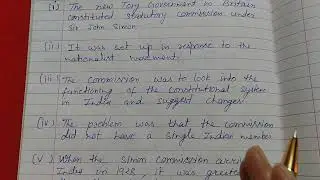 (i) The new Tory Government in Britain
constituted statutory commission under
Sir John Simon
(ii) It was set up in response to the
nationalist movement.
(iii) The commission was to look into the
functioning of the constitutional system
in India and suggest changes
(iv) The problem was that the commission
did not have a single Indian member
(v) When the Simon Commission arri
India in 1928, it was greet